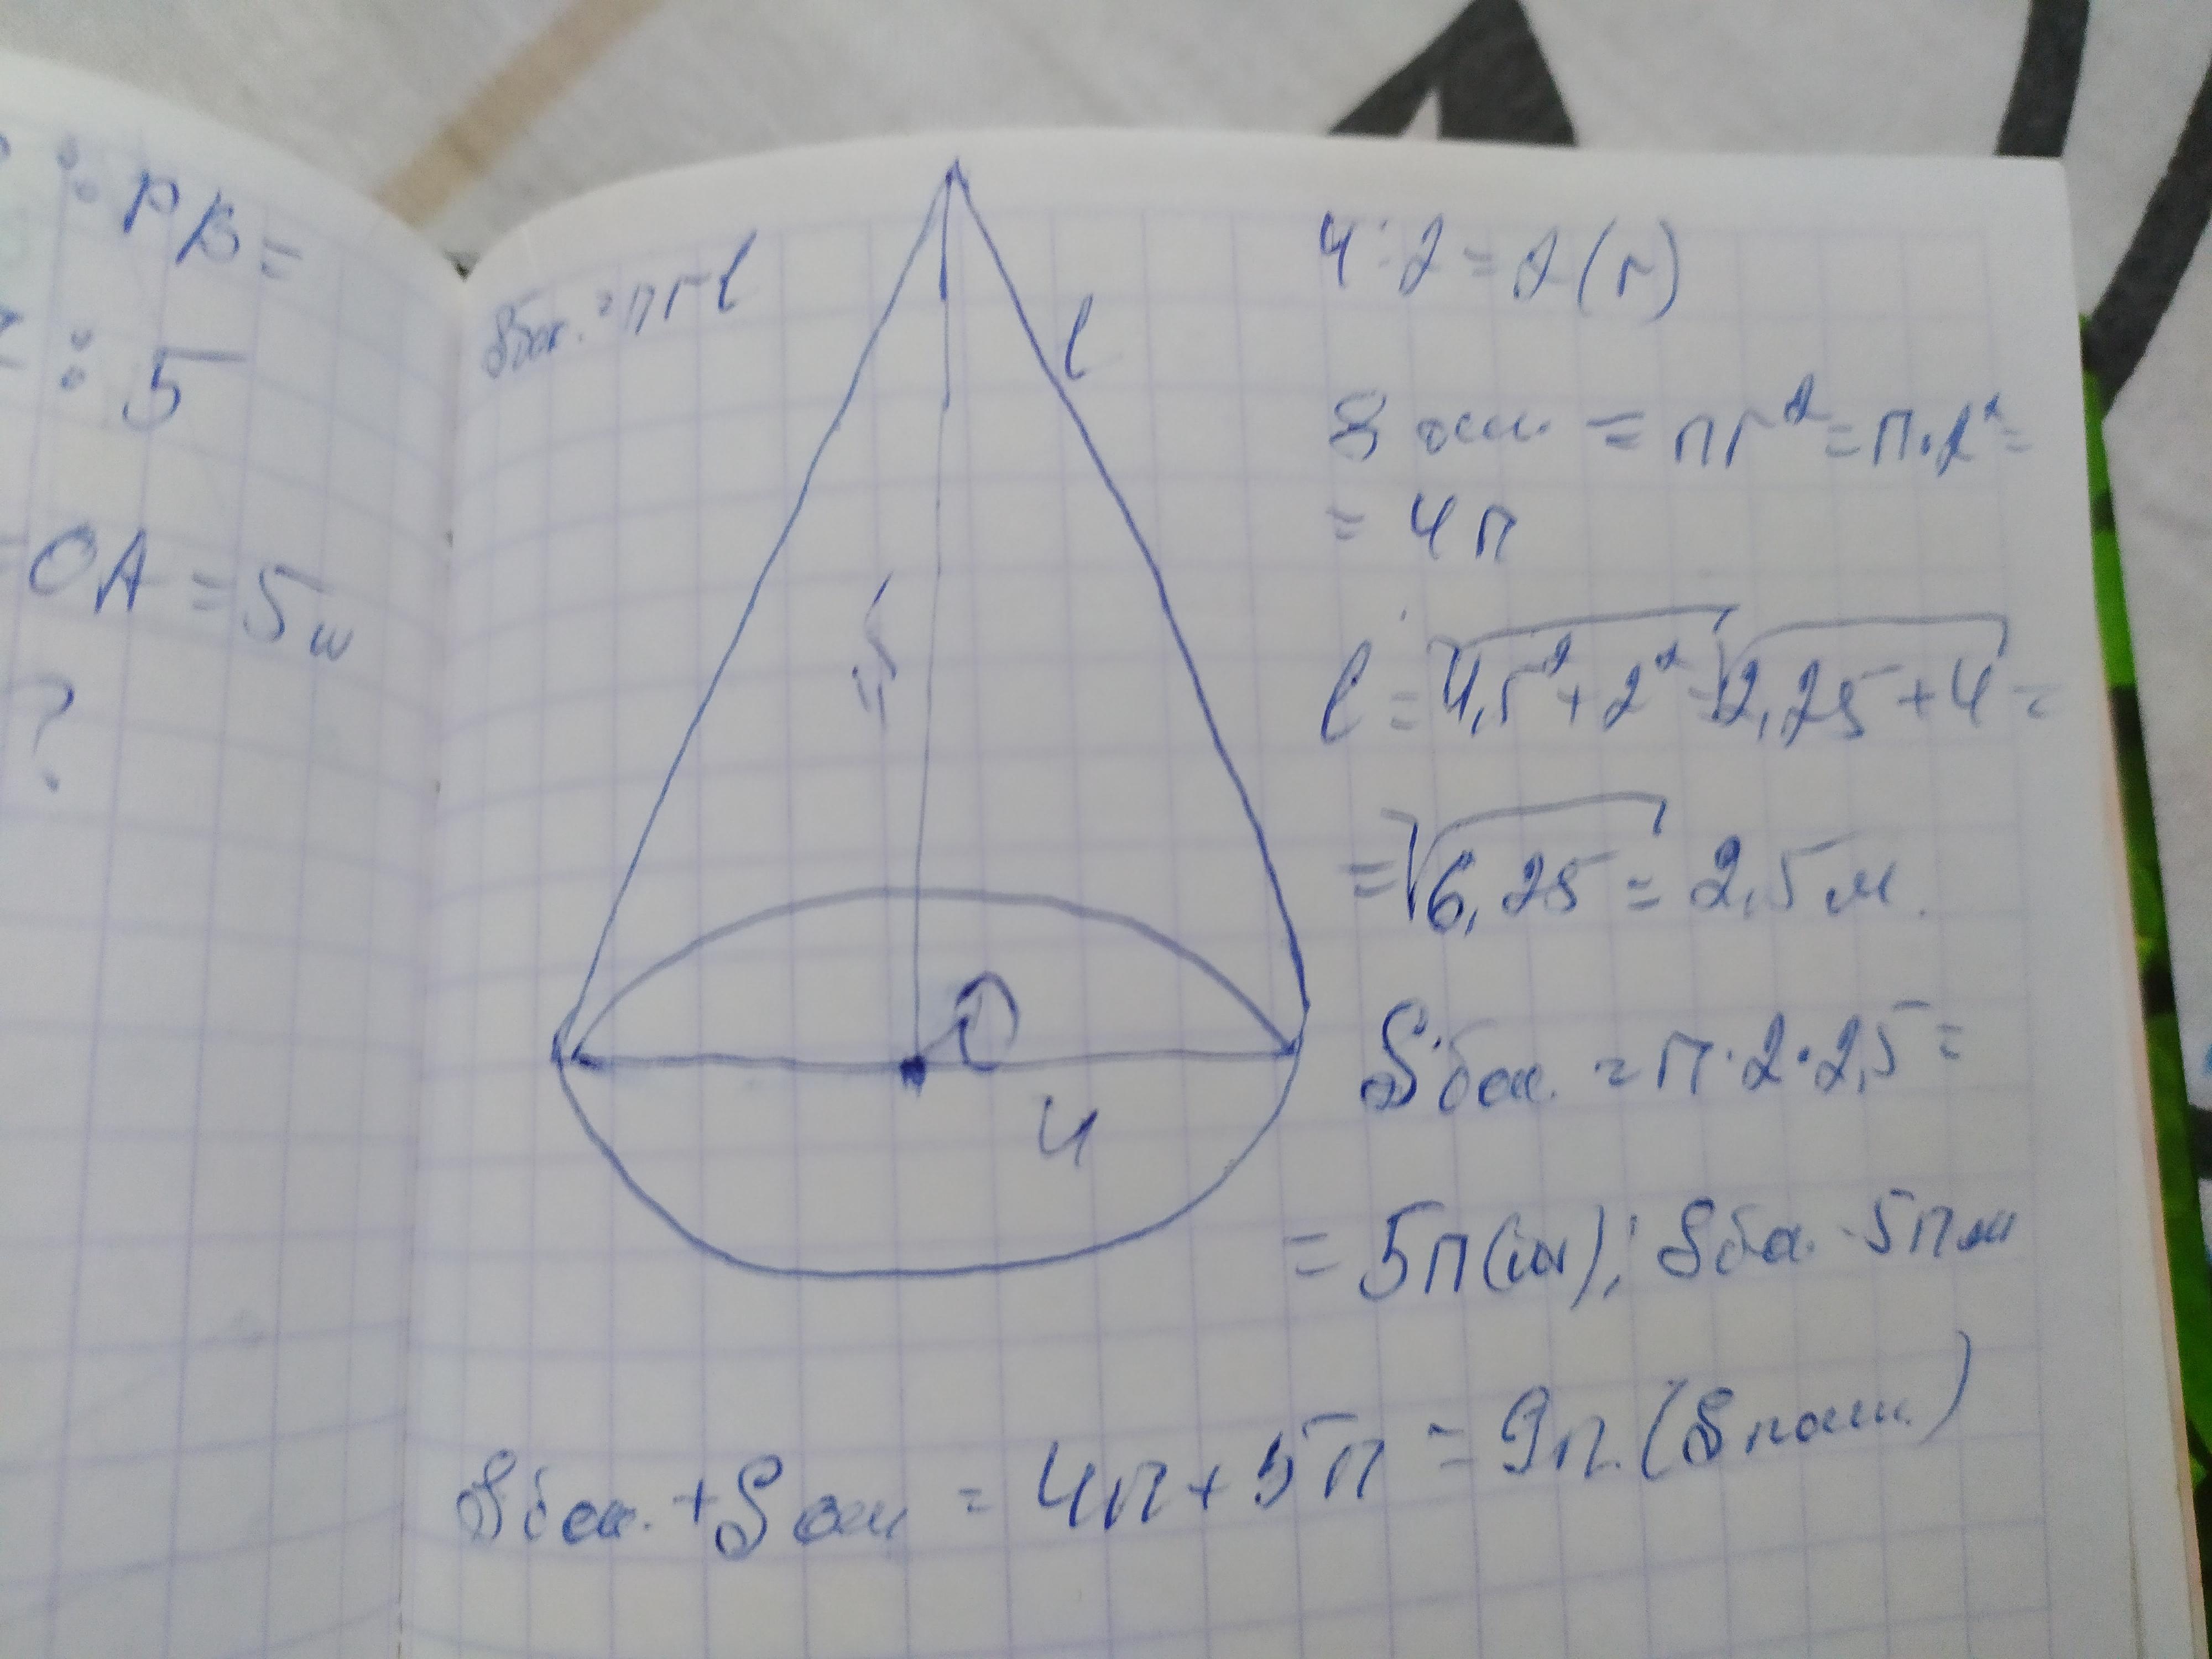 : PB =
: 5
= OA = 5 м
?
Sбок. = πrl
l
O
4
4 : 2 = 2 (r)
S осн. = πr² = π·2² =
= 4π
l = √4,5² + 2² = √2,25 + 4 =
= √6,25 = 2,5 м.
Sбок. = π·2·2,5 =
= 5π (м); Sбок. 5π м
Sбок. + Sосн = 4π + 5π = 9π. (Sполн.)